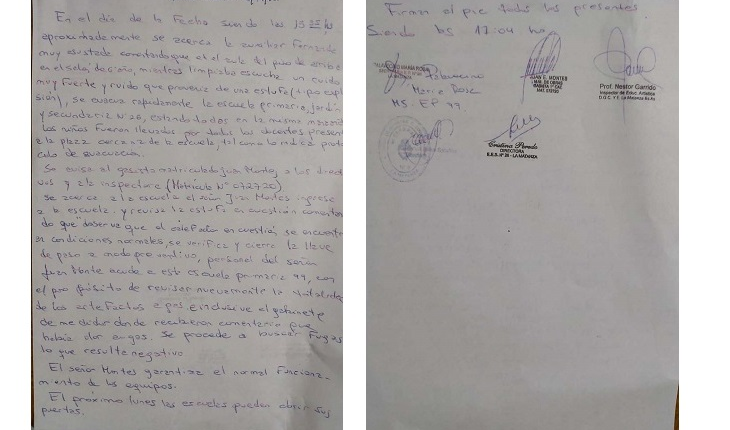 En el día de la Fecha siendo las 13 25 hs
aproximadamente se acerca la auxiliar Fernanda
muy asustada comentando que en el aula del piso de arriba
mientras limpiaba escucha un ruido
muy fuerte y ruido que proviene de una estufa (tipo expl
sión), se evacua rapidamente la escuela primaria, Jardín
y secundaria N° 28, estando todos en la misma manzana
los niños fueron llevados por todos los docentes presentes
a la plaza cercana de la escuela, tal como lo indica proto
colo de evacuación.
Se avisa al gasista matriculado Juan Montes, a los direct
vos y a la inspectora (Matricula N° 072720)
se acerca a la escuela el señor Juan Montes ingresa
a la escuela y revisa la estufa en cuestión comentan
do que observa que el artefacto en cuestión se encuentra
en condiciones normales, se verifica y cierra la llave
de paso a modo preventivo, personal del señor
acude a esta escuela primaria 99, con
el propósito de revisar nuevamente la
de los artefactos a gas, e inclusive el gabinete
de medidor donde recibieron comentario que
había olor a gas. Se procede a buscar Fugas
lo que resulta negativo
El señor Montes garantiza el normal Funciona-
miento de los equipos.
El próximo lunes las escuelas pueden abrir sus
puertas.
Firman al pie todos los presentes
Siendo las 17:04 hs.
MARIA ROSA
Palavecino
Maria Rosa
MS - EP 99
JUAN E. MONTES
Prof. Nestor Garrido
Inspector de Educ. Artística
D.G.C. Y E. La Matanza
Cristina Pereda
DIRECTORA
E.E.S. N° 28 - LA MATANZA